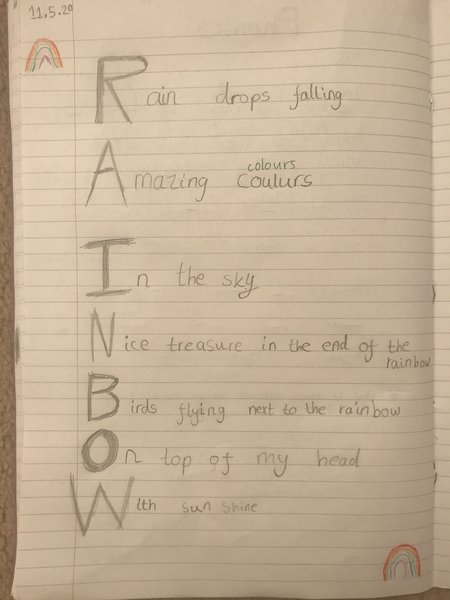 11.5.20
Rain drops falling
colours
Amazing Coulurs
In the sky
Nice treasure in the end of the
rainbow
Birds flying next to the rainbow
On top of my head
With sun shine